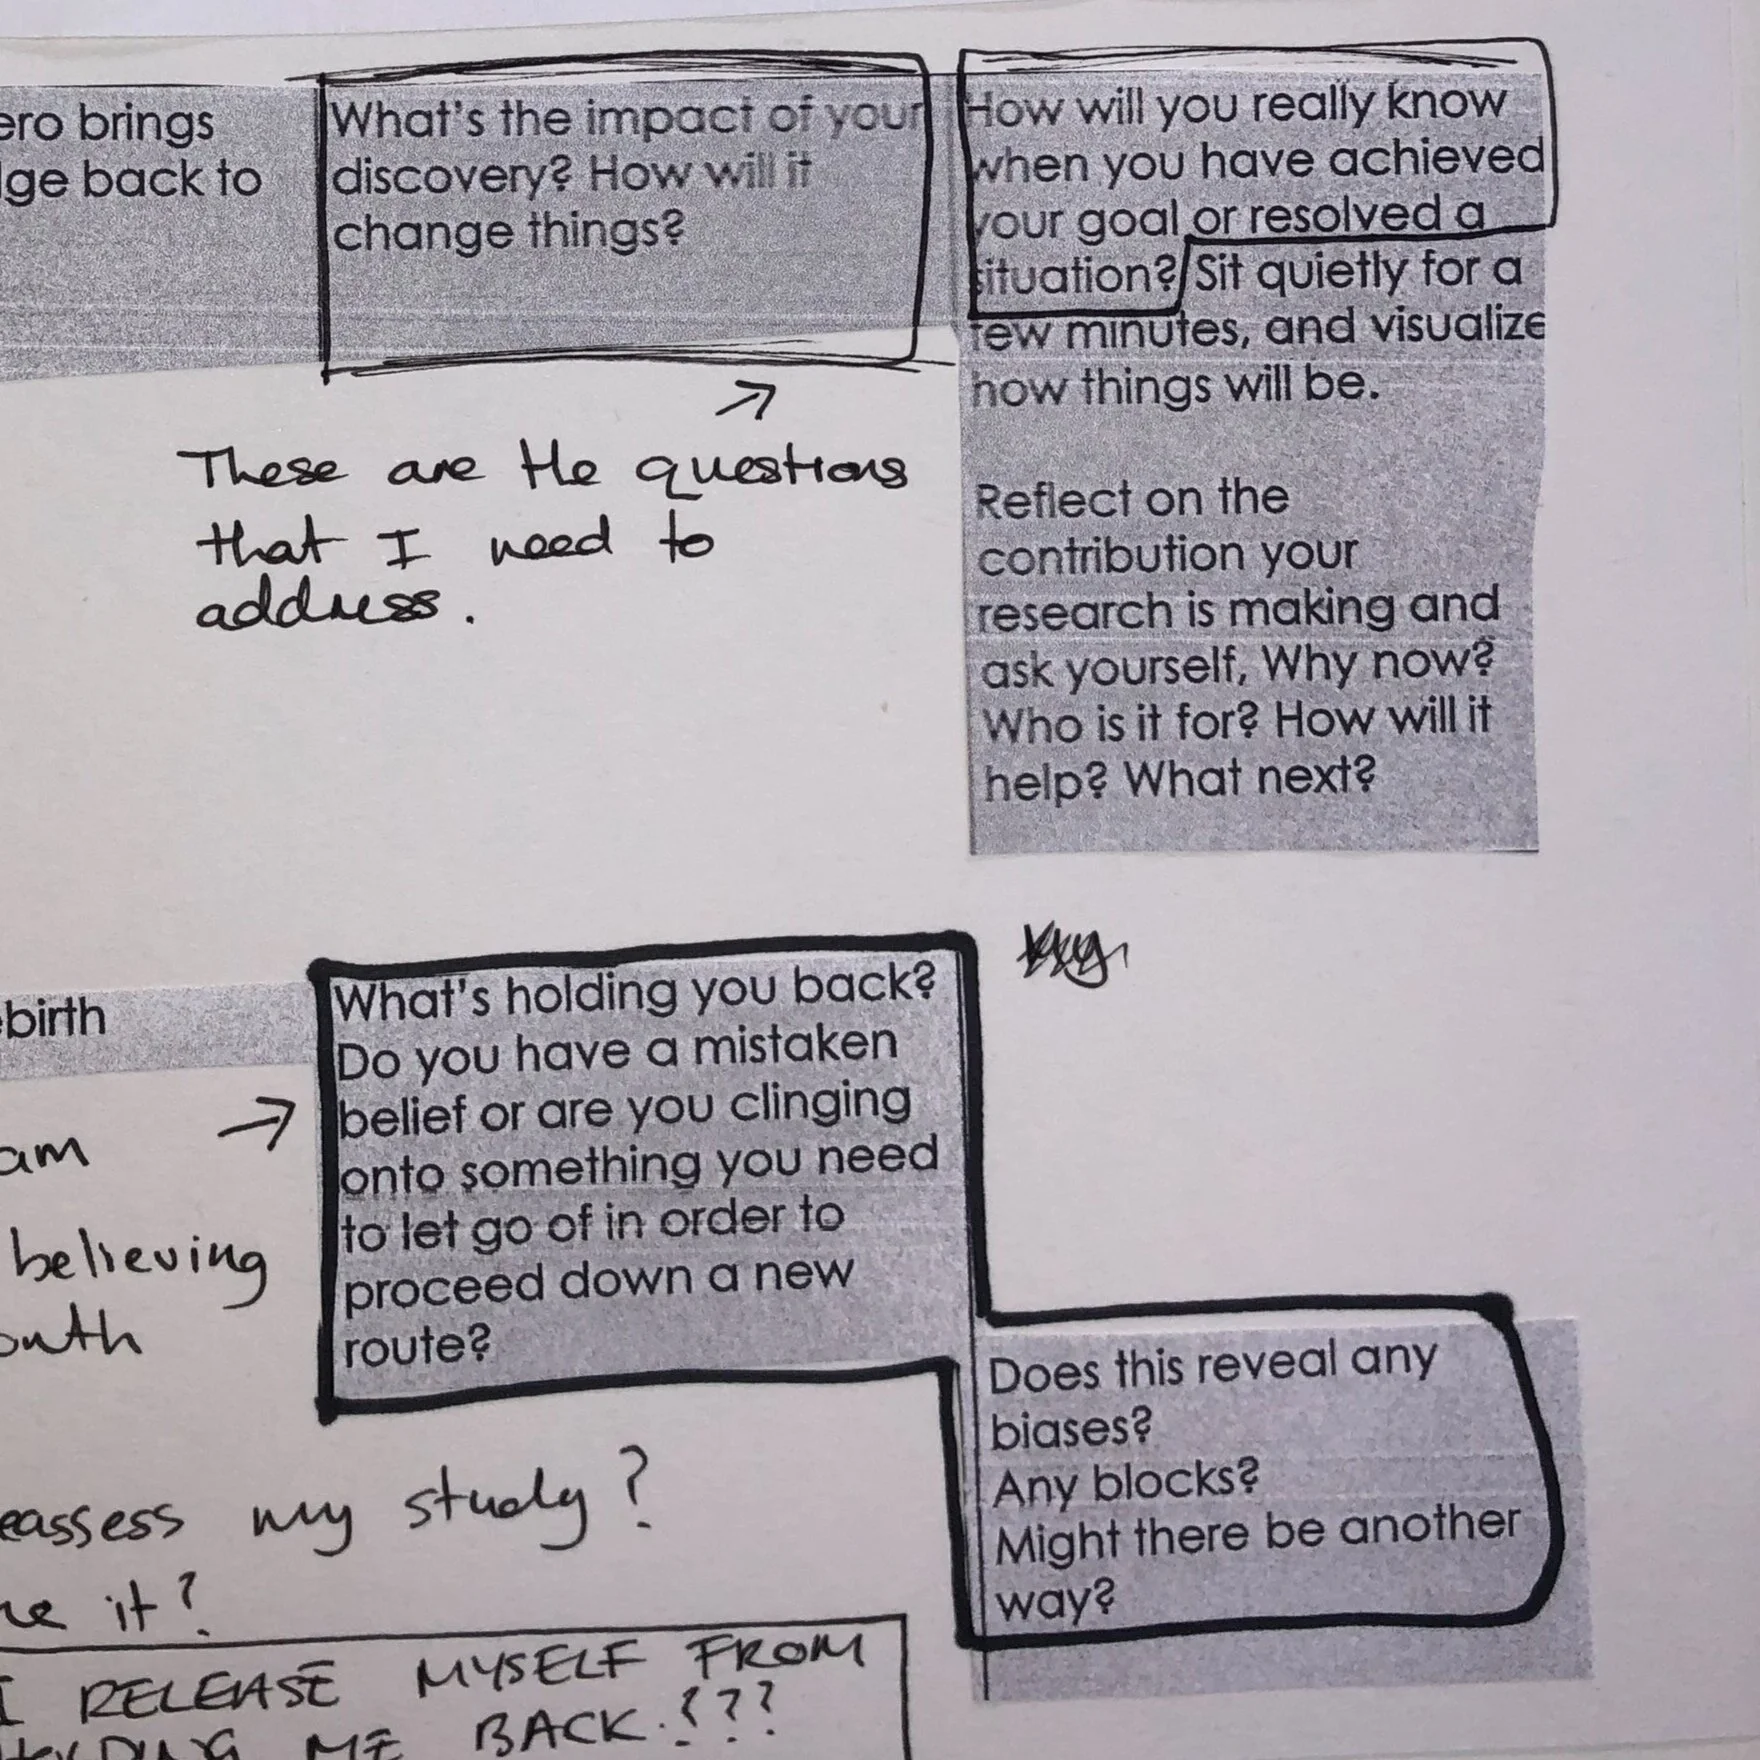 ero brings
ge back to
What's the impact of your
discovery? How will it
change things?
How will you really know
when you have achieved
your goal or resolved a
situation? Sit quietly for a
few minutes, and visualize
how things will be.
Reflect on the
contribution your
research is making and
ask yourself, Why now?
Who is it for? How will it
help? What next?
These are the questions
that I need to
address.
birth
What's holding you back?
Do you have a mistaken
belief or are you clinging
onto something you need
to let go of in order to
proceed down a new
route?
am
believing
outh
Does this reveal any
biases?
Any blocks?
Might there be another
way?
eassess my study?
it?
I RELEASE MYSELF FROM
ME BACK.???